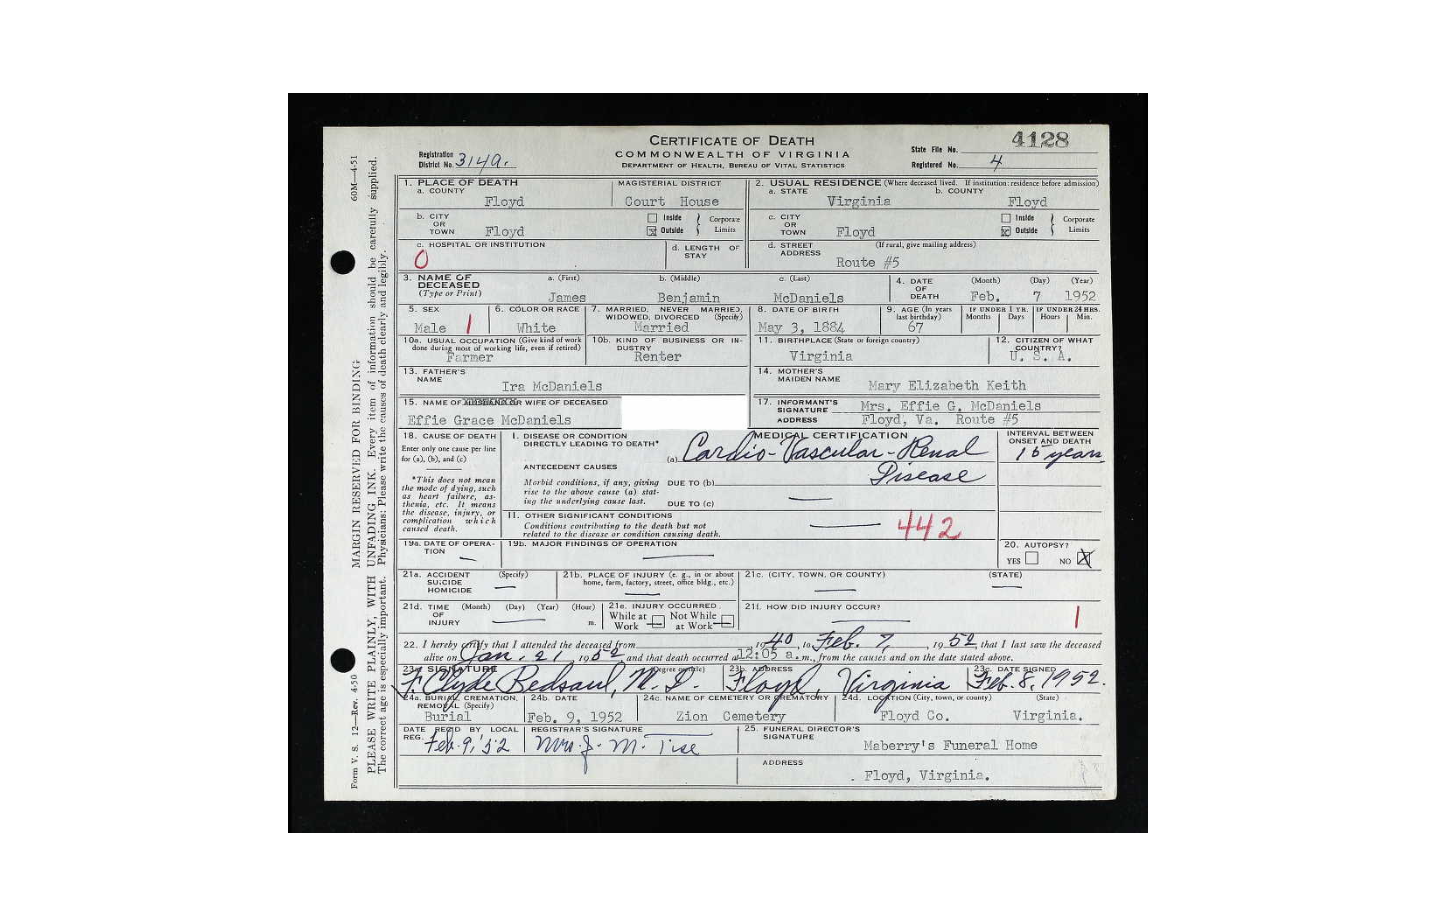 CERTIFICATE OF DEATH
4128
COMMONWEALTH OF VIRGINIA
DEPARTMENT OF HEALTH, BUREAU OF VITAL STATISTICS
Registration District No. 3149.
State File No.
Registered No. 4
1. PLACE OF DEATH
a. COUNTY Floyd
MAGISTERIAL DISTRICT Court House
2. USUAL RESIDENCE (Where deceased lived. If institution: residence before admission)
a. STATE Virginia
b. COUNTY Floyd
b. CITY OR TOWN Floyd
Inside
Outside
Corporate Limits
c. CITY OR TOWN Floyd
Inside
Outside
Corporate Limits
c. HOSPITAL OR INSTITUTION
0
d. LENGTH OF STAY
d. STREET ADDRESS (If rural, give mailing address)
Route #5
3. NAME OF DECEASED (Type or Print)
a. (First) James
b. (Middle) Benjamin
c. (Last) McDaniels
4. DATE OF DEATH (Month) (Day) (Year)
Feb. 7 1952
5. SEX Male 1
6. COLOR OR RACE White
7. MARRIED, NEVER MARRIED, WIDOWED, DIVORCED (Specify) Married
8. DATE OF BIRTH May 3, 1884
9. AGE (In years last birthday) 67
IF UNDER 1 YR. Months Days
IF UNDER 24 HRS. Hours Min.
10a. USUAL OCCUPATION (Give kind of work done during most of working life, even if retired)
Farmer
10b. KIND OF BUSINESS OR INDUSTRY
Renter
11. BIRTHPLACE (State or foreign country)
Virginia
12. CITIZEN OF WHAT COUNTRY?
U. S. A.
13. FATHER'S NAME
Ira McDaniels
14. MOTHER'S MAIDEN NAME
Mary Elizabeth Keith
15. NAME OF OR WIFE OF DECEASED
Effie Grace McDaniels
17. INFORMANT'S SIGNATURE Mrs. Effie G. McDaniels
ADDRESS Floyd, Va. Route #5
18. CAUSE OF DEATH
Enter only one cause per line for (a), (b), and (c)
*This does not mean the mode of dying, such as heart failure, asthenia, etc. It means the disease, injury, or complication which caused death.
MEDICAL CERTIFICATION
INTERVAL BETWEEN ONSET AND DEATH
I. DISEASE OR CONDITION DIRECTLY LEADING TO DEATH*
(a) Cardio-Vascular-Renal Disease
15 years
ANTECEDENT CAUSES
Morbid conditions, if any, giving rise to the above cause (a) stating the underlying cause last.
DUE TO (b)
DUE TO (c)
II. OTHER SIGNIFICANT CONDITIONS
Conditions contributing to the death but not related to the disease or condition causing death.
442
19a. DATE OF OPERATION
19b. MAJOR FINDINGS OF OPERATION
20. AUTOPSY?
YES NO X
21a. ACCIDENT SUICIDE HOMICIDE (Specify)
21b. PLACE OF INJURY (e. g., in or about home, farm, factory, street, office bldg., etc.)
21c. (CITY, TOWN, OR COUNTY) (STATE)
21d. TIME OF INJURY (Month) (Day) (Year) (Hour) m.
21e. INJURY OCCURRED
While at Work
Not While at Work
21f. HOW DID INJURY OCCUR?
1
22. I hereby certify that I attended the deceased from 1940, to Feb. 7, 1952, that I last saw the deceased
alive on Jan. 21, 1952 and that death occurred at 12:05 a.m., from the causes and on the date stated above.
23a. SIGNATURE (Degree or title)
F. Clyde Bedsaul, M. D.
23b. ADDRESS
Floyd, Virginia
23c. DATE SIGNED
Feb. 8, 1952.
24a. BURIAL, CREMATION, REMOVAL (Specify)
Burial
24b. DATE
Feb. 9, 1952
24c. NAME OF CEMETERY OR CREMATORY
Zion Cemetery
24d. LOCATION (City, town, or county) (State)
Floyd Co. Virginia.
DATE REC'D BY LOCAL REG.
Feb. 9, '52
REGISTRAR'S SIGNATURE
Mrs. J. M. Tise
25. FUNERAL DIRECTOR'S SIGNATURE
Maberry's Funeral Home
ADDRESS
Floyd, Virginia.
Form V. S. 12—Rev. 4-50
MARGIN RESERVED FOR BINDING
60M—4-51
PLEASE WRITE PLAINLY, WITH UNFADING INK. Every item of information should be carefully supplied.
The correct age is especially important. Physicians: Please write the causes of death clearly and legibly.